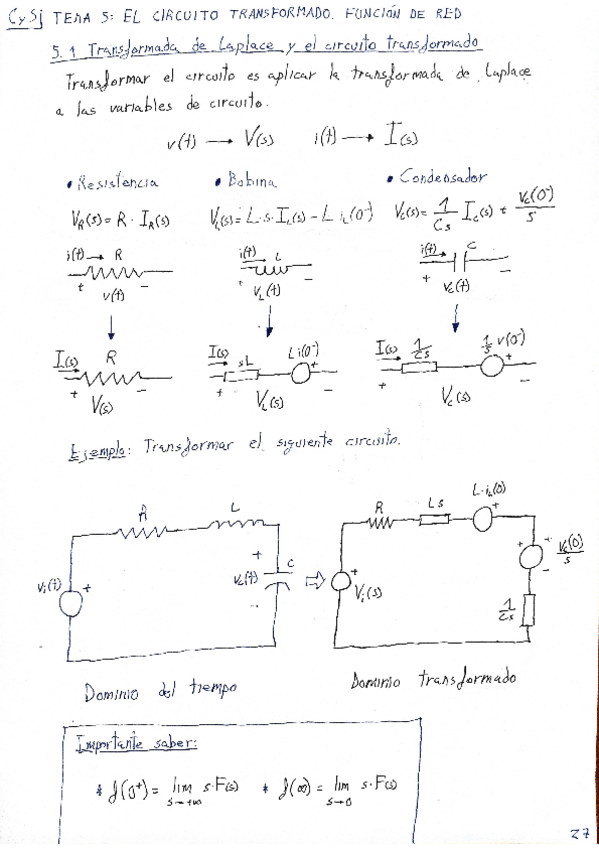 CySj TEMA 5: EL CIRCUITO TRANSFORMADO. FUNCIÓN DE RED
5.1 Transformada de Laplace y el circuito transformado
Transformar el circuito es aplicar la transformada de Laplace
a las variables de circuito.
v(t) → V(s) i(t) → I(s)
• Resistencia • Bobina • Condensador
V_R(s) = R · I_R(s) V_L(s) = L·s·I_L(s) - L i_L(0⁻) V_C(s) = 1/Cs I_C(s) + V_C(0⁻)/s
i(t) → R i(t) L i(t) C
+ v(t) - + V_L(t) - + V_C(t) -
I(s) R I(s) sL Li(0⁻) I(s) 1/Cs 1/s v(0⁻)
+ V(s) - + V_L(s) - + V_C(s) -
Ejemplo: Transformar el siguiente circuito.
R L R Ls L·i_L(0)
v_i(t) + + v_C(t) C ⇨ + V_i(s) + + V_C(0)/s -
1/Cs
Dominio del tiempo Dominio transformado
Importante saber:
* f(0⁺) = lim s→+∞ s·F(s) * f(∞) = lim s→0 s·F(s)
27